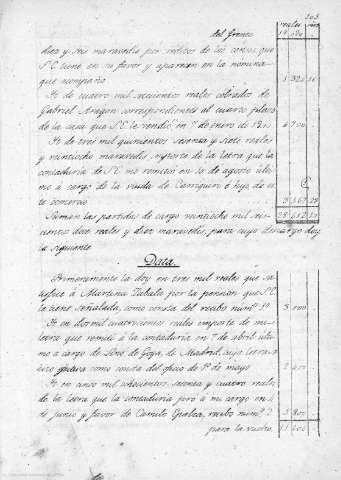 203
reales mrs
del frente
diez y seis maravedis por reditos de los censos que
S E tiene en su favor y aparecen en la nomina
que acompaño
It de cuatro mil setecientos reales cobrados de
Gabriel Aragon correspondientes al cuarto plazo
de la casa que S E le vendió en 7 de enero de
4 700
It de tres mil quinientos sesenta y siete reales
y veintiocho maravedis importe de la letra que la
contaduria de S E me remitió en 10 de agosto ulti
mo á cargo de la viuda de Carriquiri é hijo de es
te comercio
3 567 28
Suman las partidas de cargo veintiocho mil seis
cientos doce reales y diez maravedis, para cuyo descargo doy
la siguiente
Data
Primeramente la doy en tres mil reales que sa
tisfice á Martina Zabalza por la pension que S E
le tiene señalada, como consta del recibo num.º 1º
3 000
It en dos mil cuatrocientos reales importe de mi
letra que remiti á la contaduria en 7 de abril ulti
mo á cargo de de Goya, de Madrid, cuya letra
como consta del oficio de 1º de mayo
2 400
It en cinco mil ochocientos sesenta y cuatro reales
de la letra que la contaduria giró á mi cargo en
de junio y favor de Camilo recibo num.º 2
para la vuelta